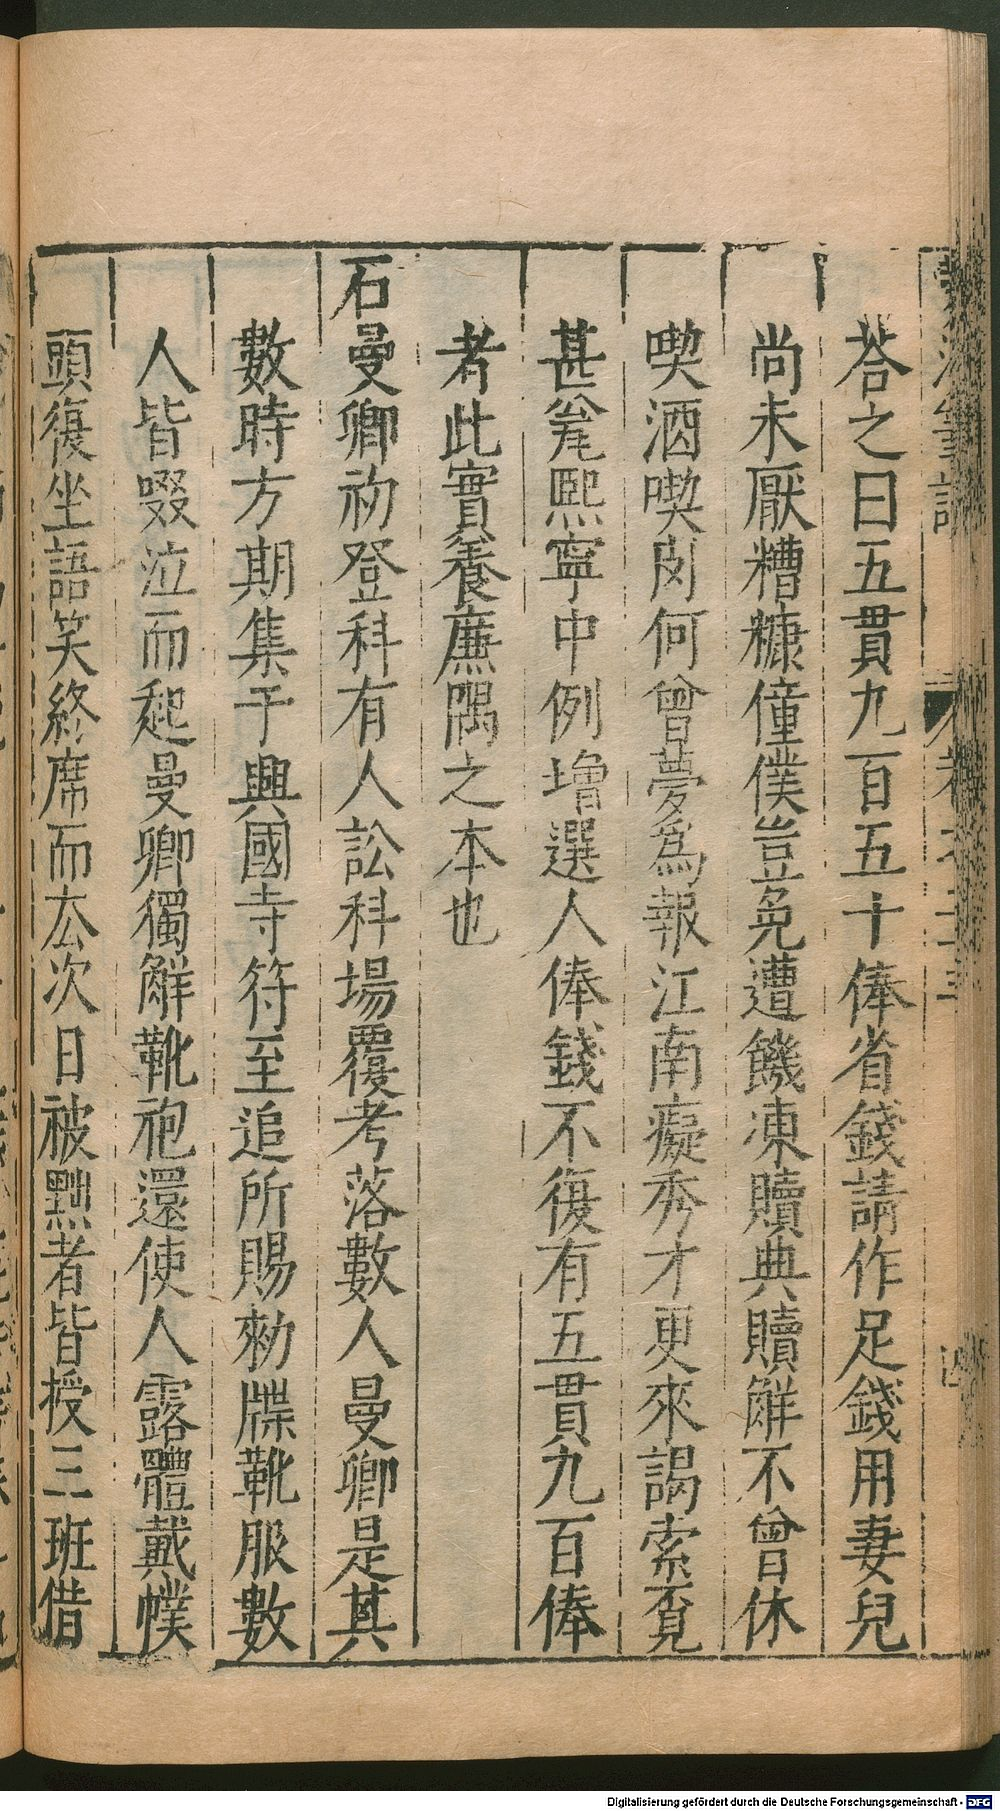 荅之曰五貫九百五十俸省錢請作足錢用妻兒
尚未厭糟糠僮僕豈免遭饑凍贖典贖解不曾休
喫酒喫肉何曾夢為報江南癡秀才更來謁索覓
甚瓮熙寧中例增選人俸錢不復有五貫九百俸
者此實養廉隅之本也
石曼卿初登科有人訟科場覆考落數人曼卿是其
數時方期集于興國寺符至追所賜勑牒靴服數
人皆啜泣而起曼卿獨解靴袍還使人露體戴幞
頭復坐語笑終席而厺次日被黜者皆授三班借
Digitalisierung gefördert durch die Deutsche Forschungsgemeinschaft - DFG